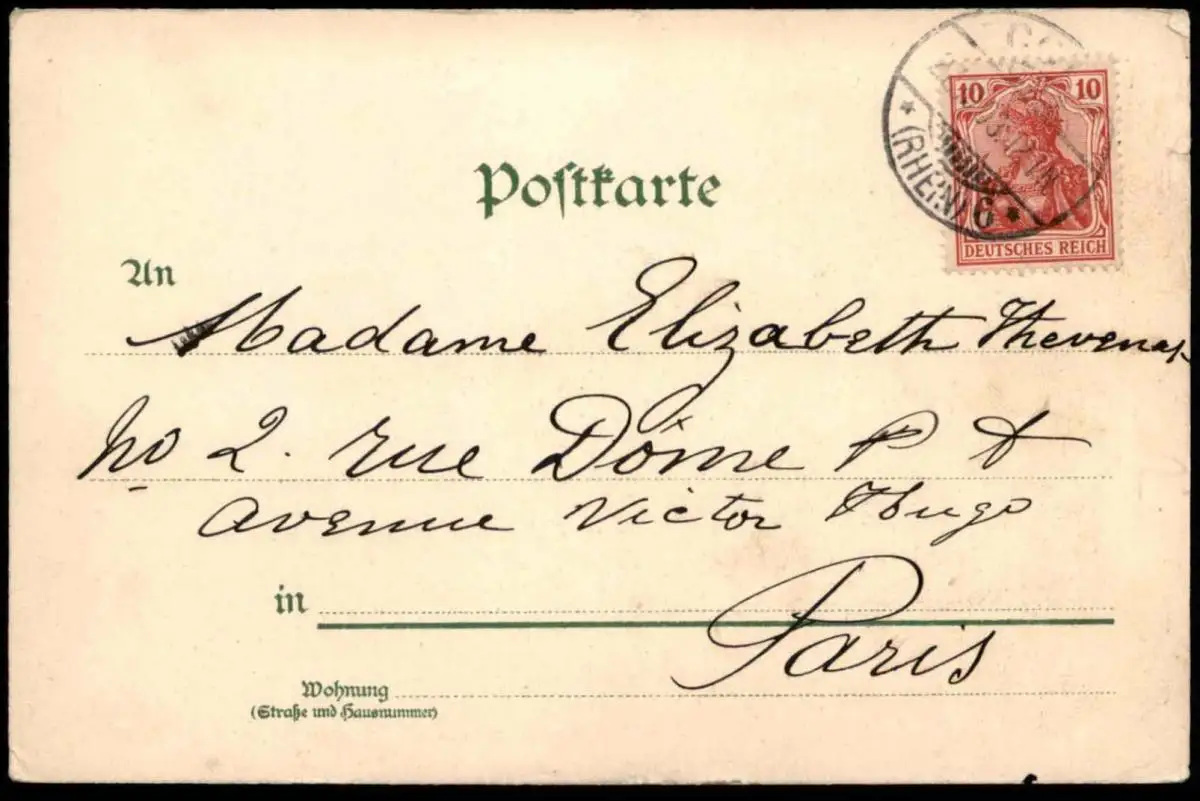 10 10
(RHEIN) 6
DEUTSCHES REICH
Postkarte
An
Madame Elizabeth
No 2. rue Dôme P
avenue Victor Hugo
in
Paris
Wohnung
(Straße und Hausnummer)